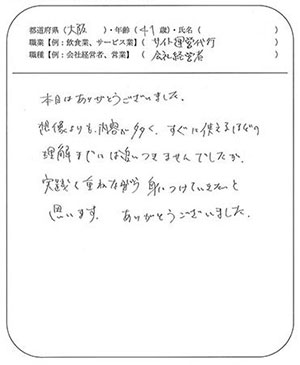 都道府県（大阪　）・年齢（41歳）・氏名（　）
職業【例：飲食業、サービス業】（サイト運営代行　）
職種【例：会社経営者、営業】（会社経営者　）
本日はありがとうございました。
想像よりも、内容が多く、すぐに使えるほどの
理解までには追いつきませんでしたが、
実践を重ねながら 身につけていきたいと
思います。　ありがとうございました。